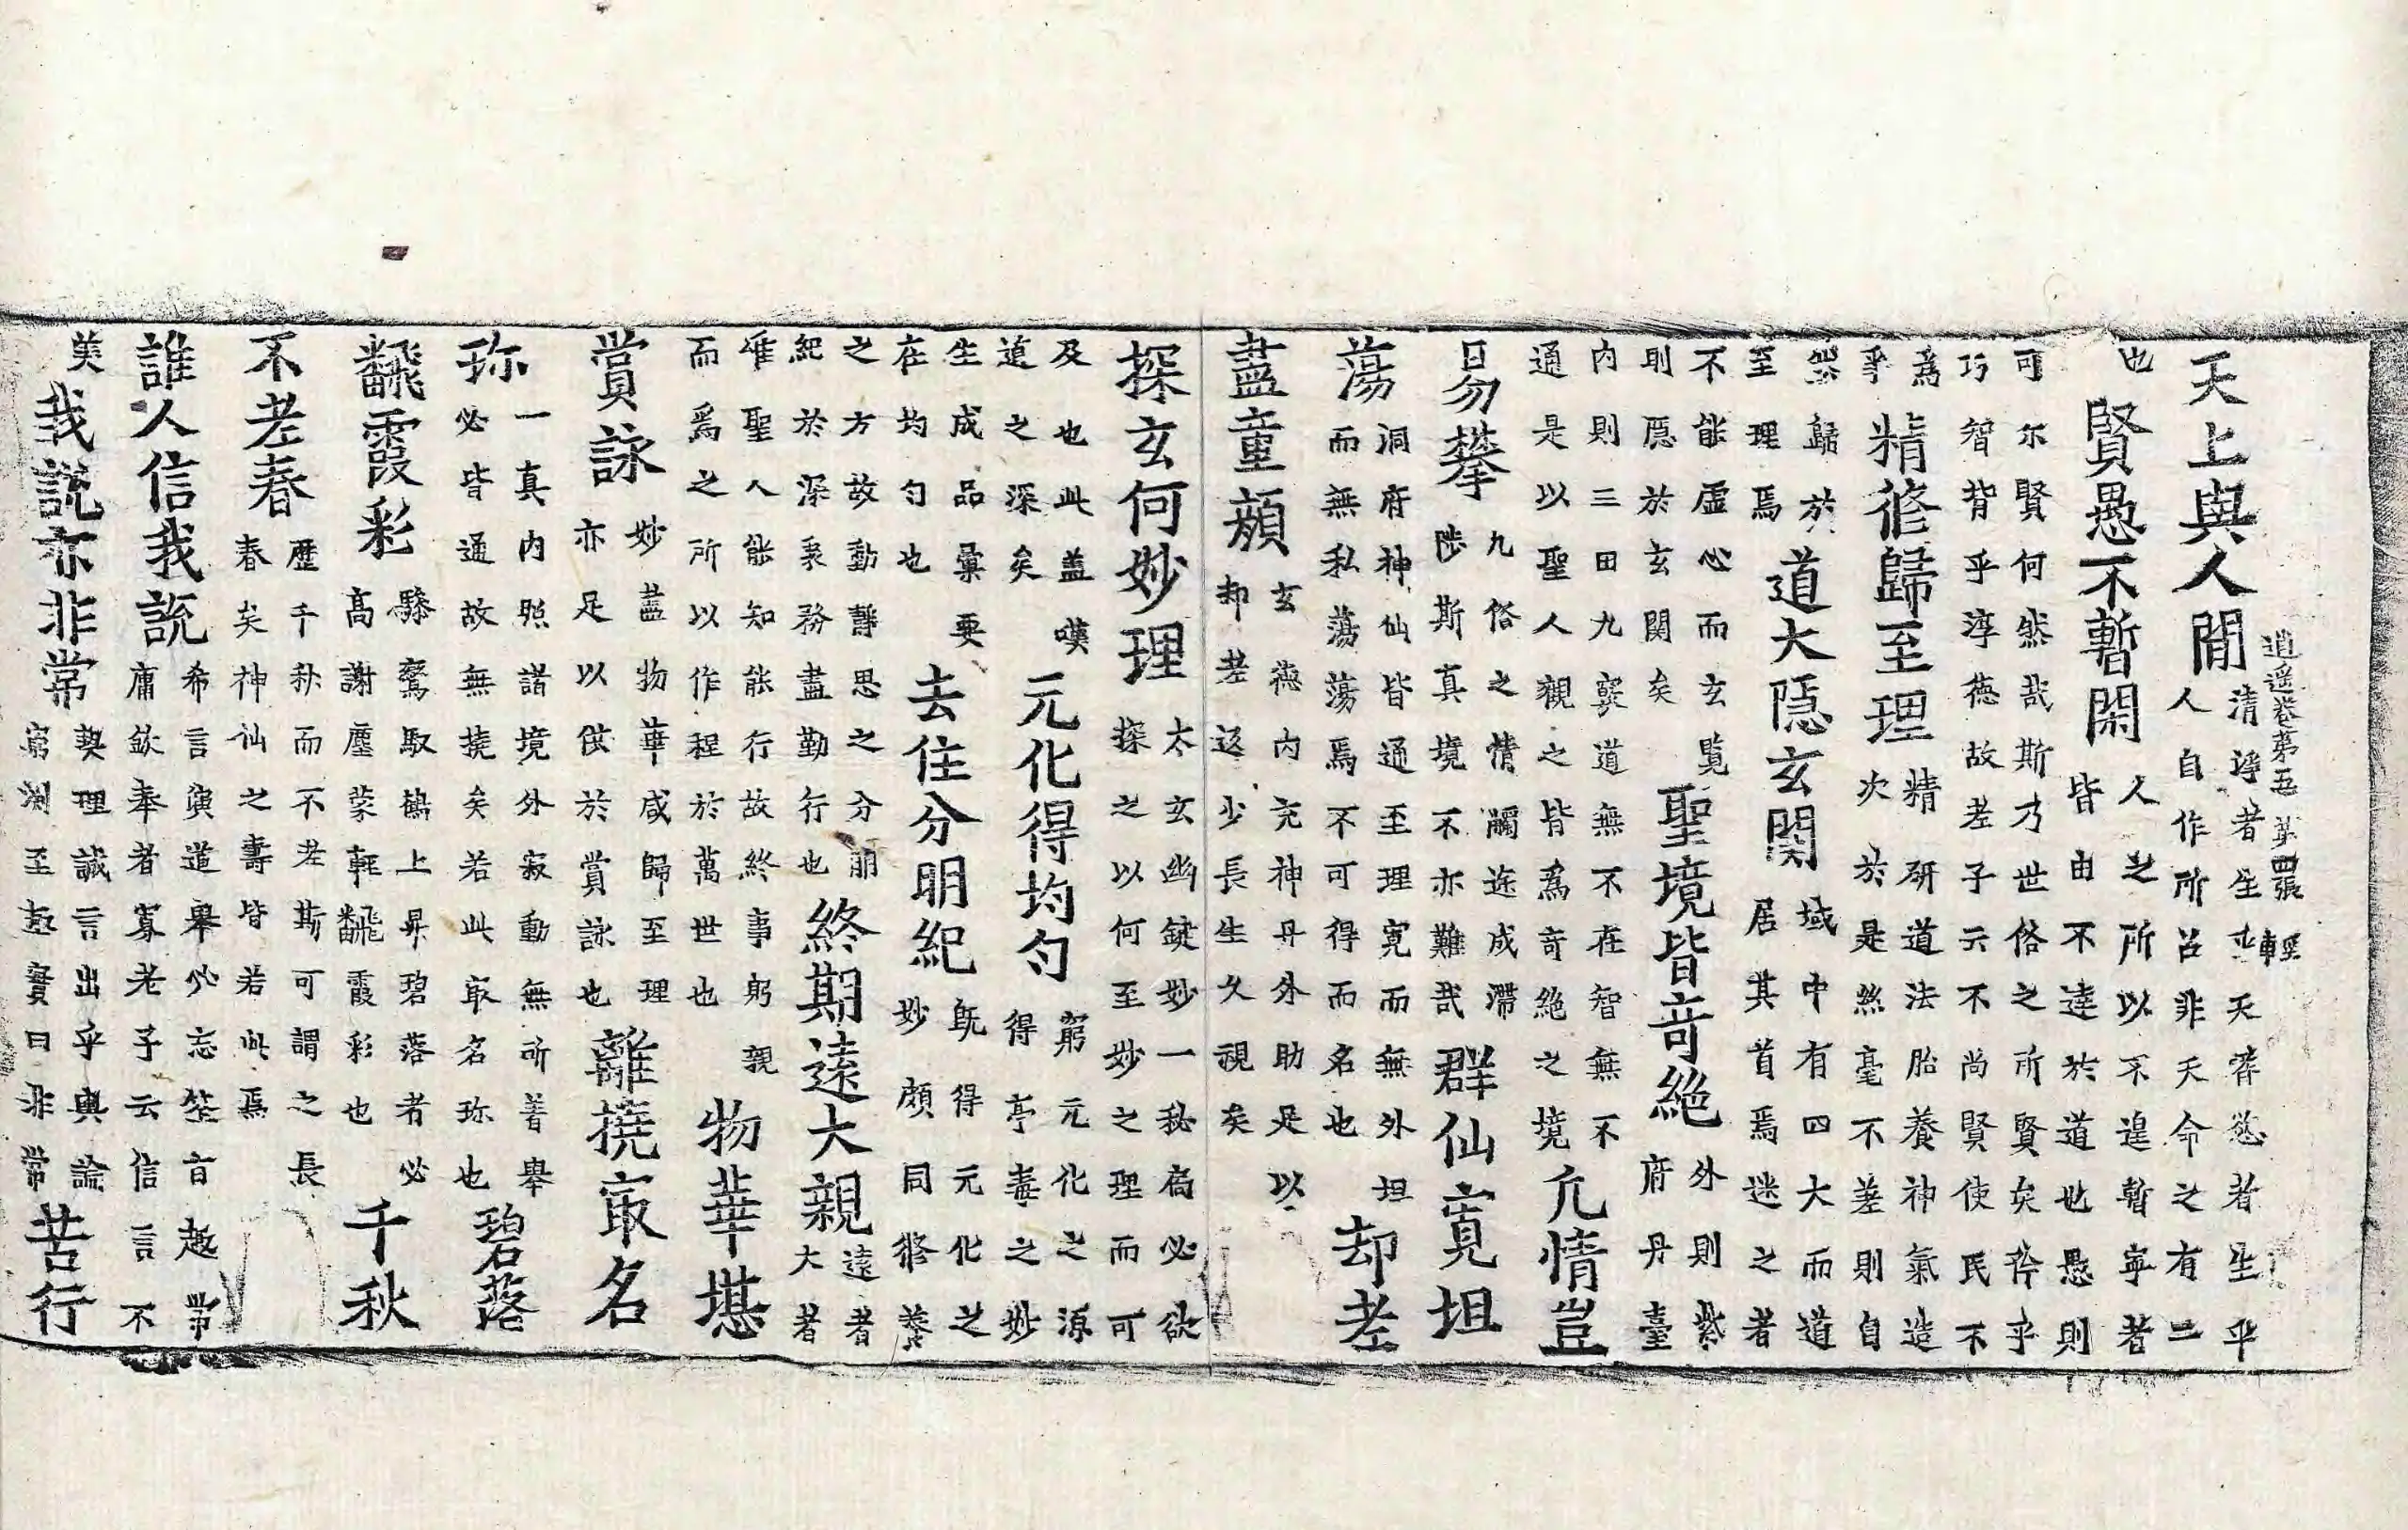 逍遥卷第五 第四張 輕
天上與人間
清淨者生於天濟慾者生乎
人自作所召非天命之有二
也
賢愚不暫閑
人之所以不遑暫寧者
皆由不達於道也愚則
可尒賢何然哉斯乃世俗之所賢矣矜乎
巧智背乎淳德故老子云不尚賢使民不
爲
爭
精修歸至理
精研道法胎養神氣造
次於是然毫不差則自
然歸於
至理焉
道大隱玄関
域中有四大而道
居其首焉迷之者
不能虛心而玄覧
則慝於玄関矣
聖境皆竒絶
外則紫
府丹臺
内則三田九竅道無不在智無不
通是以聖人觀之皆爲竒絶之境
凢情豈
易攀
凡俗之情觸途成滯
陟斯真境不亦難哉
群仙寛坦
蕩
洞府神仙皆通至理寛而無外坦
而無私蕩蕩焉不可得而名也
却老
盡童顔
玄德内充神丹外助是以
却老返少長生久視矣
探玄何妙理
太玄幽鍵妙一秘扃必欲
探之以何至妙之理而可
及也此盖嘆
道之深矣
元化得均勻
窮元化之源
得亭毒之妙
生成品彙要
在均勻也
去住分明紀
旣得元化之
妙頗同修養
之方故動靜思之分明
紀於深衷務盡勤行也
終期遠大親
遠者
大者
唯聖人能知能行故終事躬親
而爲之所以作程於萬世也
物華堪
賞詠
妙盡物華咸歸至理
亦足以供於賞詠也
離撓㝡名
珎
一真内照諸境外寂動無所著舉
必皆通故無撓矣若此㝡名珎也
碧落
飜霞彩
驂鸞馭鶴上昇碧落者必
高謝塵蒙輕飜霞彩也
千秋
不老春
歷千秋而不老斯可謂之長
春矣神仙之壽皆若此焉
誰人信我說
希言演道舉必忘筌旨趣常
庸欽奉者寡老子云信言不
美
我説亦非常
契理誠言出乎輿論
窮測至趣實曰非常
苦行